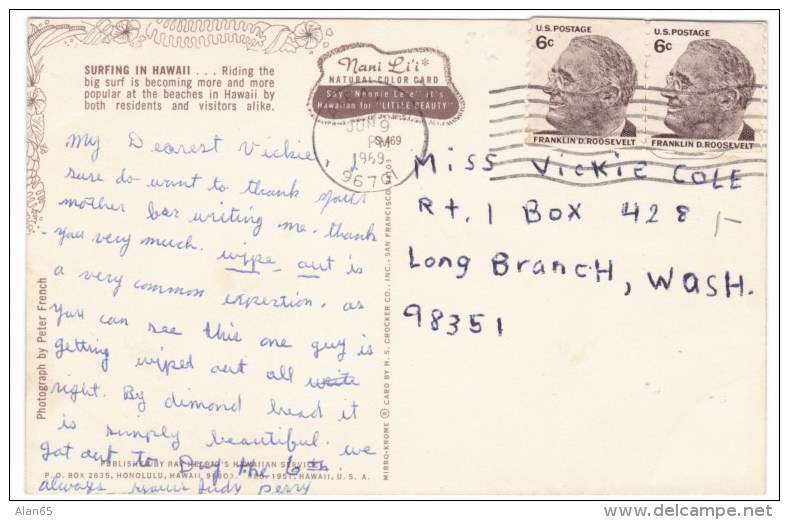 SURFING IN HAWAII . . . Riding the
big surf is becoming more and more
popular at the beaches in Hawaii by
both residents and visitors alike.
Nani Li'i*
NATURAL COLOR CARD
Hawaiian for "LITTLE BEAUTY"
U.S. POSTAGE
6c
FRANKLIN D. ROOSEVELT
U.S. POSTAGE
6c
FRANKLIN D. ROOSEVELT
JUN 9
PM
1969
96701
S-469
My Dearest Vickie, I
sure do want to thank your
mother for writing me. thank
you very much. wipe out is
a very common expertion. as
you can see this one guy is
getting wiped out all write
right. By dimond head it
is simply beautiful. we
got out to the 6th.
always yours Judy Perry
Miss Vickie Cole
Rt. 1 Box 428
Long Branch, Wash.
98351
Photograph by Peter French
PUBLISHED BY RAY HELBIG'S HAWAIIAN SERVICE
P. O. BOX 2835, HONOLULU, HAWAII 96803. REG. 1957, HAWAII, U. S. A.
MIRRO-KROME ® CARD BY H. S. CROCKER CO., INC., SAN FRANCISCO
Alan65
www.delcampe.net